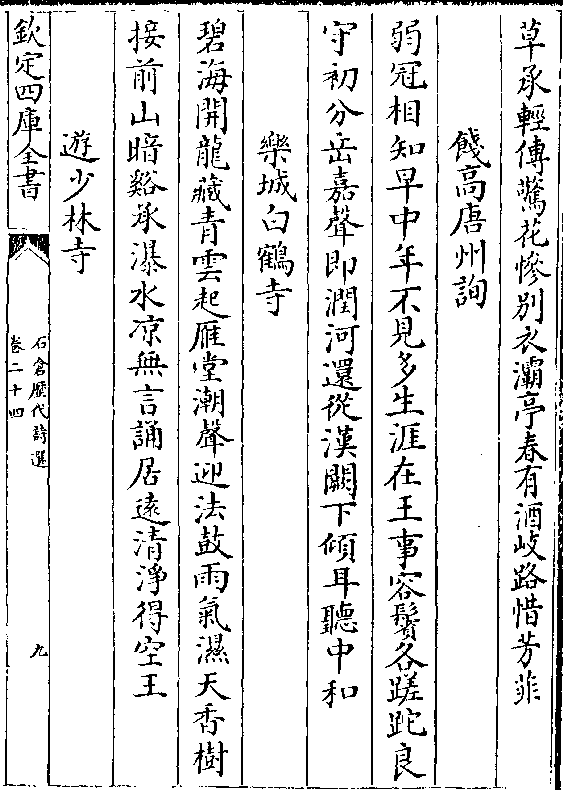 草承輕傳驚花慘别衣灞亭春有酒岐路惜芳菲
餞高唐州詢
弱冠相知早中年不見多生涯在王事容鬢各蹉跎良
守初分岳嘉聲即潤河還從漢闕下傾耳聽中和
樂城白鶴寺
碧海開龍藏青雲起雁堂潮聲迎法鼓雨氣濕天香樹
接前山暗谿承瀑水凉無言誦居逺清淨得空王
遊少林寺
欽定四庫全書
石倉歷代詩選
卷二十四
九